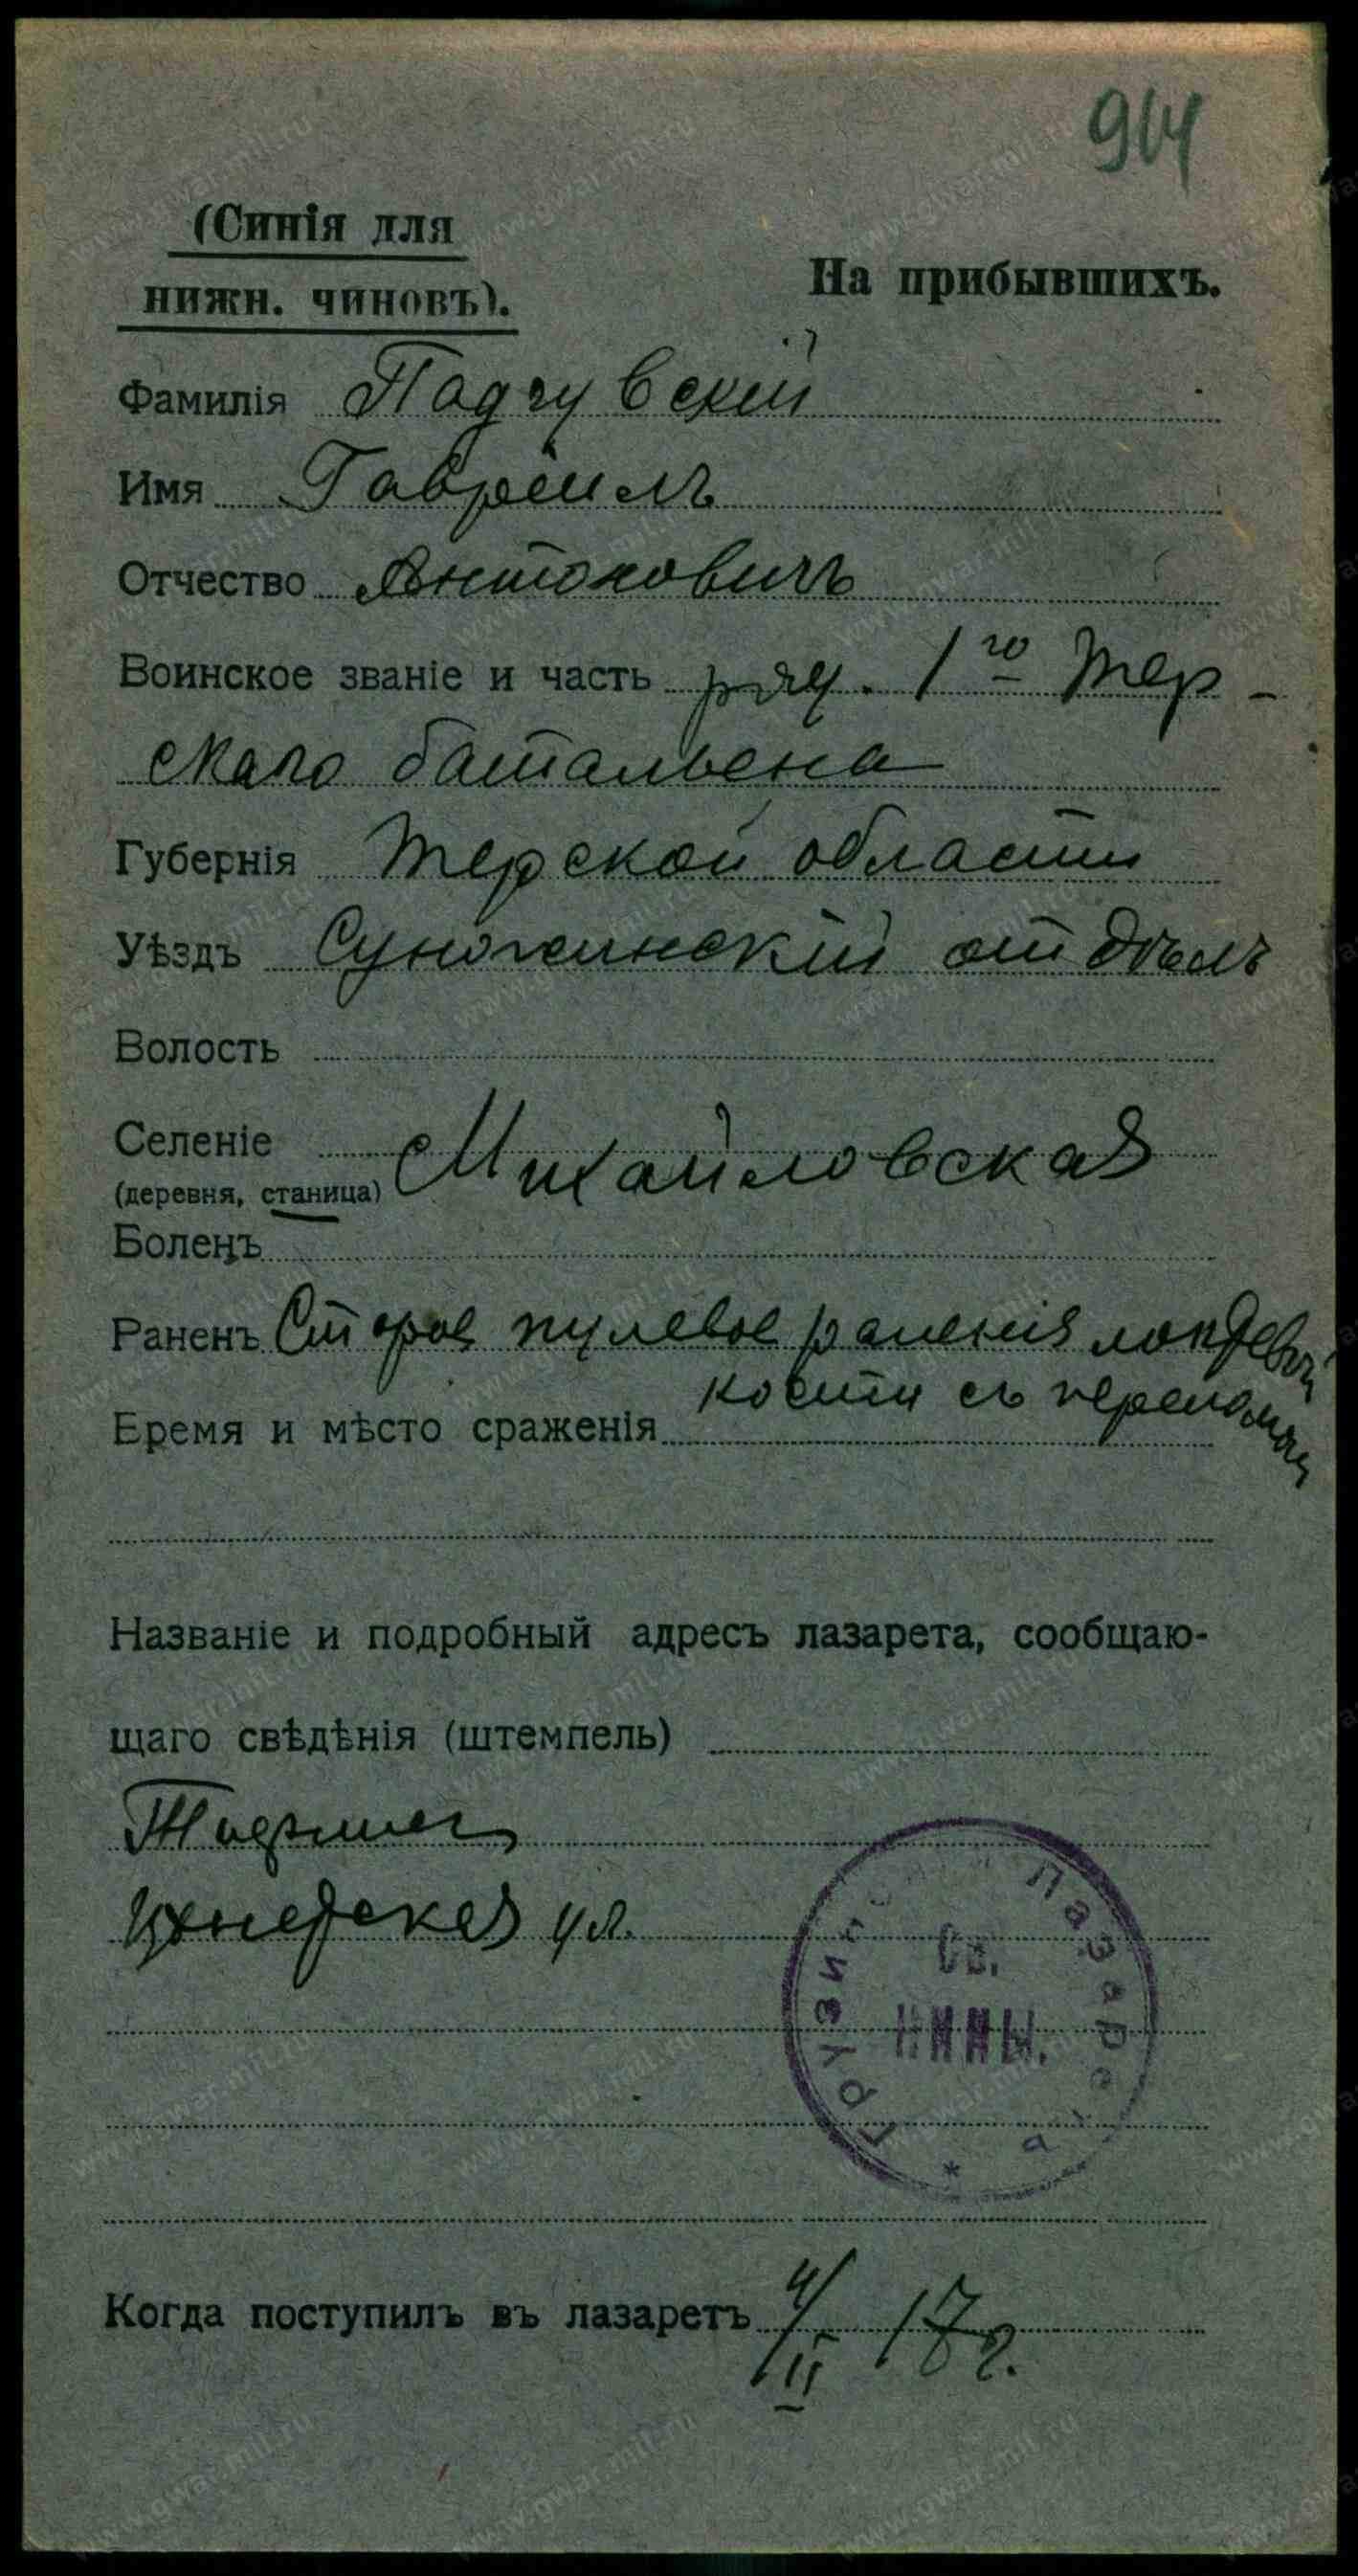 914
(Синія для
нижн. чиновъ).
На прибывшихъ.
Фамилія Падгувскій
Имя Гавріилъ
Отчество Антоновичъ
Воинское званіе и часть ряд. 1го Тер-
скаго батальена
Губернія Терской области
Уѣздъ Сунженскій отдѣлъ
Волость
Селеніе Михайловская
(деревня, станица)
Боленъ
Раненъ Старое пулевое раненія локтевой
кости съ переломом
Время и мѣсто сраженія
Названіе и подробный адресъ лазарета, сообщаю-
щаго свѣдѣнія (штемпель)
Тифлис
Цхнетская ул.
Грузинскій Лазаретъ
Св.
НИНЫ.
Когда поступилъ въ лазаретъ 4/II 17 г.